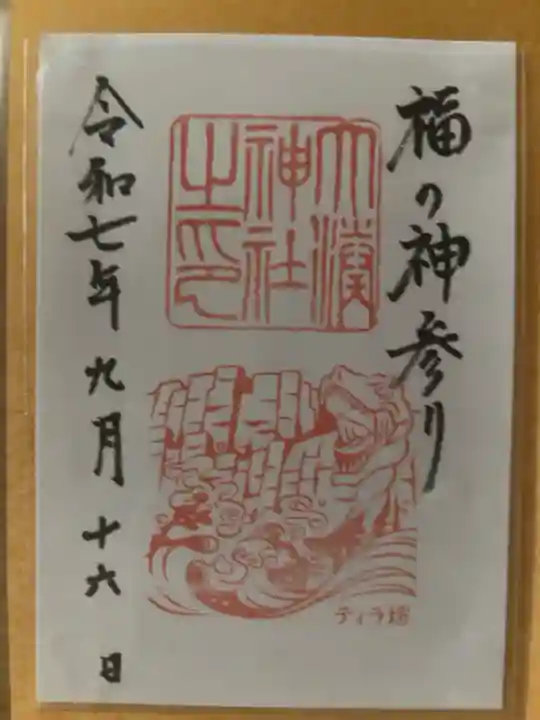 福の神參り
大湊
神社
之印
ティラ
令和七年九月十六日